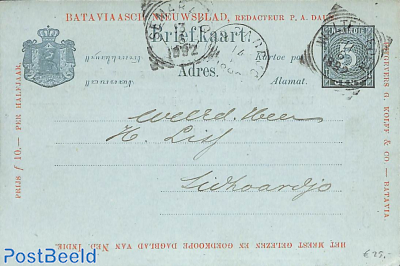 BATAVIAASCH NIEUWSBLAD, REDACTEUR P. A. DAUM
Briefkaart.
Kartoe pos
Adres.
Alamat.
3
1892
PRIJS f 10,— PER HALFJAAR.
UITGEVERS G. KOLFF & CO — BATAVIA.
Weled. Heer
Sidhoardjo
HET MEEST GELEZEN EN GOEDKOOPE DAGBLAD VAN NED. INDIE.
€25,-
PostBeeld